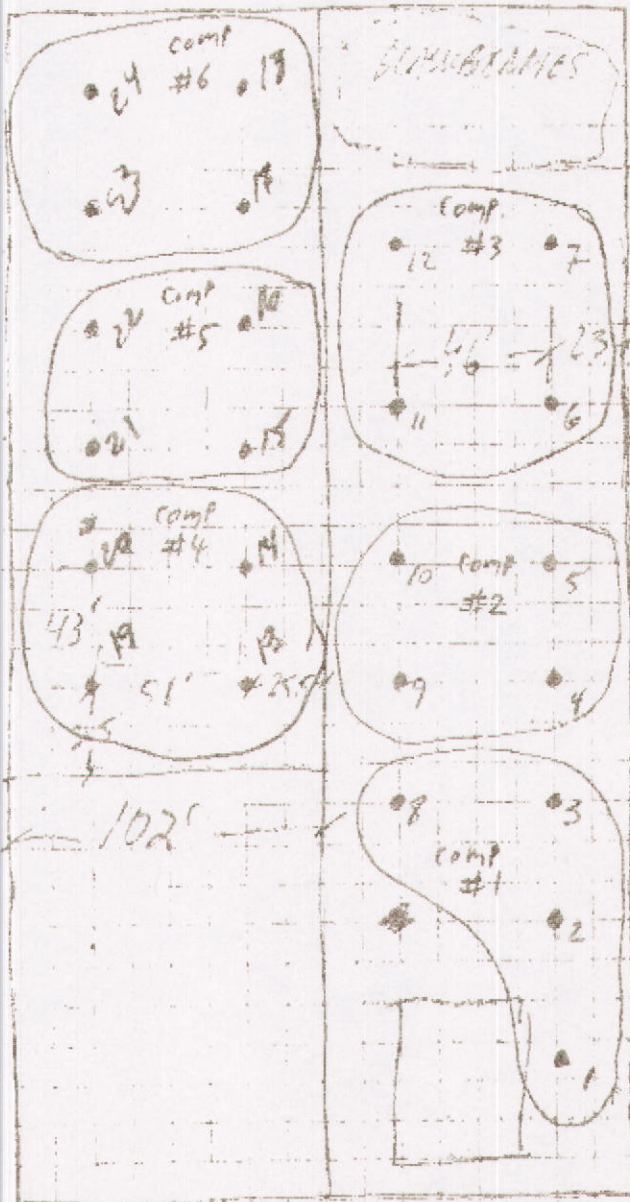 comp
#6
24
18
23
17
comp
#5
22
16
21
15
comp
#4
20
14
43'
19
13
51'
25.5'
102'
comp.
#3
12
7
46'
23
11
6
10
comp.
#2
5
9
4
8
3
comp
#1
2
1